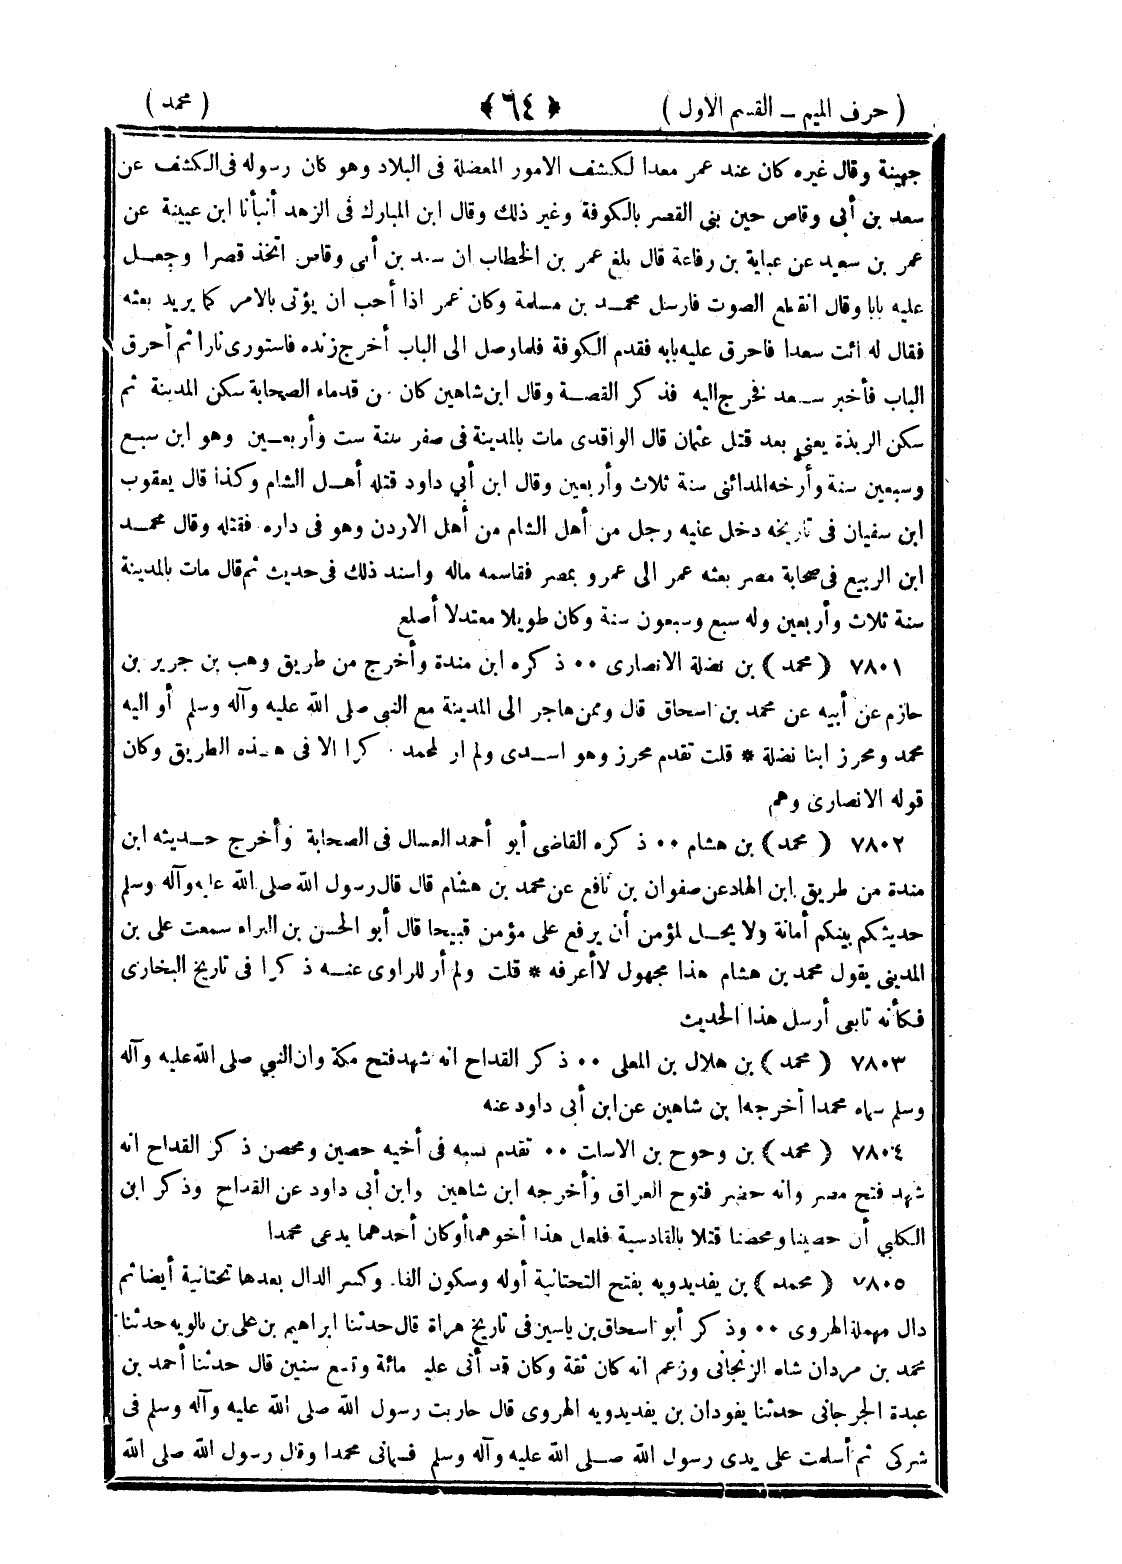 ( حرف الميم – القسم الاول ) ﴿ ٦٤ ﴾ ( محمد )
جهينة وقال غيره كان عند عمر معدا لكشف الامور المعضلة فى البلاد وهو كان رسوله فى الكشف عن
سعد بن أبى وقاص حين بنى القصر بالكوفة وغير ذلك وقال ابن المبارك فى الزهد أنبأنا ابن عيينة عن
عمر بن سعيد عن عباية بن رفاعة قال بلغ عمر بن الخطاب ان سعد بن أبى وقاص اتخذ قصرا وجعل
عليه بابا وقال انقطع الصوت فارسل محمد بن مسلمة وكان عمر اذا أحب ان يؤتى بالامر كما يريد بعثه
فقال له ائت سعدا فاحرق عليه بابه فقدم الكوفة فلما وصل الى الباب أخرج زنده فاستورى نارا ثم أحرق
الباب فأخبر سعد فخرج اليه فذكر القصة وقال ابن شاهين كان من قدماء الصحابة سكن المدينة ثم
سكن الربذة يعنى بعد قتل عثمان قال الواقدى مات بالمدينة فى صفر سنة ست وأربعين وهو ابن سبع
وسبعين سنة وأرخه المدائنى سنة ثلاث وأربعين وقال ابن أبي داود قتله أهل الشام وكذا قال يعقوب
ابن سفيان فى تاريخه دخل عليه رجل من أهل الشام من أهل الاردن وهو فى داره فقتله وقال محمد
ابن الربيع فى صحابة مصر بعثه عمر الى عمرو بمصر فقاسمه ماله واسند ذلك فى حديث ثم قال مات بالمدينة
سنة ثلاث وأربعين وله سبع وسبعون سنة وكان طويلا معتدلا أصلع
٧٨٠١ ( محمد ) بن نضلة الانصارى ٠٠ ذكره ابن مندة وأخرج من طريق وهب بن جرير بن
حازم عن أبيه عن محمد بن اسحاق قال وممن هاجر الى المدينة مع النبى صلى الله عليه وآله وسلم أو اليه
محمد ومحرز ابنا نضلة * قلت تقدم محرز وهو اسدى ولم ار لمحمد ذكرا الا فى هذه الطريق وكان
قوله الانصارى وهم
٧٨٠٢ ( محمد ) بن هشام ٠٠ ذكره القاضى أبو أحمد العسال فى الصحابة وأخرج حديثه ابن
مندة من طريق ابن الهاد عن صفوان بن نافع عن محمد بن هشام قال قال رسول الله صلى الله عليه وآله وسلم
حديثكم بينكم أمانة ولا يحل لمؤمن أن يرفع على مؤمن قبيحا قال أبو الحسن بن البراء سمعت على بن
المدينى يقول محمد بن هشام هذا مجهول لا أعرفه * قلت ولم أر للراوى عنه ذكرا فى تاريخ البخارى
فكأنه تابعى أرسل هذا الحديث
٧٨٠٣ ( محمد ) بن هلال بن المعلى ٠٠ ذكر القداح انه شهد فتح مكة وان النبي صلى الله عليه وآله
وسلم سماه محمدا أخرجه ابن شاهين عن ابن أبى داود عنه
٧٨٠٤ ( محمد ) بن وحوح بن الاسلت ٠٠ تقدم نسبه فى أخيه حصين ومحصن ذكر القداح انه
شهد فتح مصر وانه حضر فتوح العراق وأخرجه ابن شاهين وابن أبى داود عن القداح وذكر ابن
الكلبي أن حصينا ومحصنا قتلا بالقادسية فلعل هذا أخوهما أو كان أحدهما يدعى محمدا
٧٨٠٥ ( محمد ) بن يفديدويه بفتح التحتانية أوله وسكون الفاء وكسر الدال بعدها تحتانية أيضا ثم
دال مهملة الهروى ٠٠ وذكر أبو اسحاق بن ياسين فى تاريخ هراة قال حدثنا ابراهيم بن على بن بالويه حدثنا
محمد بن مردان شاه الزنجانى وزعم انه كان ثقة وكان قد أتى عليه مائة وتسع سنين قال حدثنا أحمد بن
عبدة الجرجانى حدثنا يفودان بن يفديدويه الهروى قال حاربت رسول الله صلى الله عليه وآله وسلم فى
شركى ثم أسلمت على يدى رسول الله صلى الله عليه وآله وسلم فسمانى محمدا وقال رسول الله صلى الله